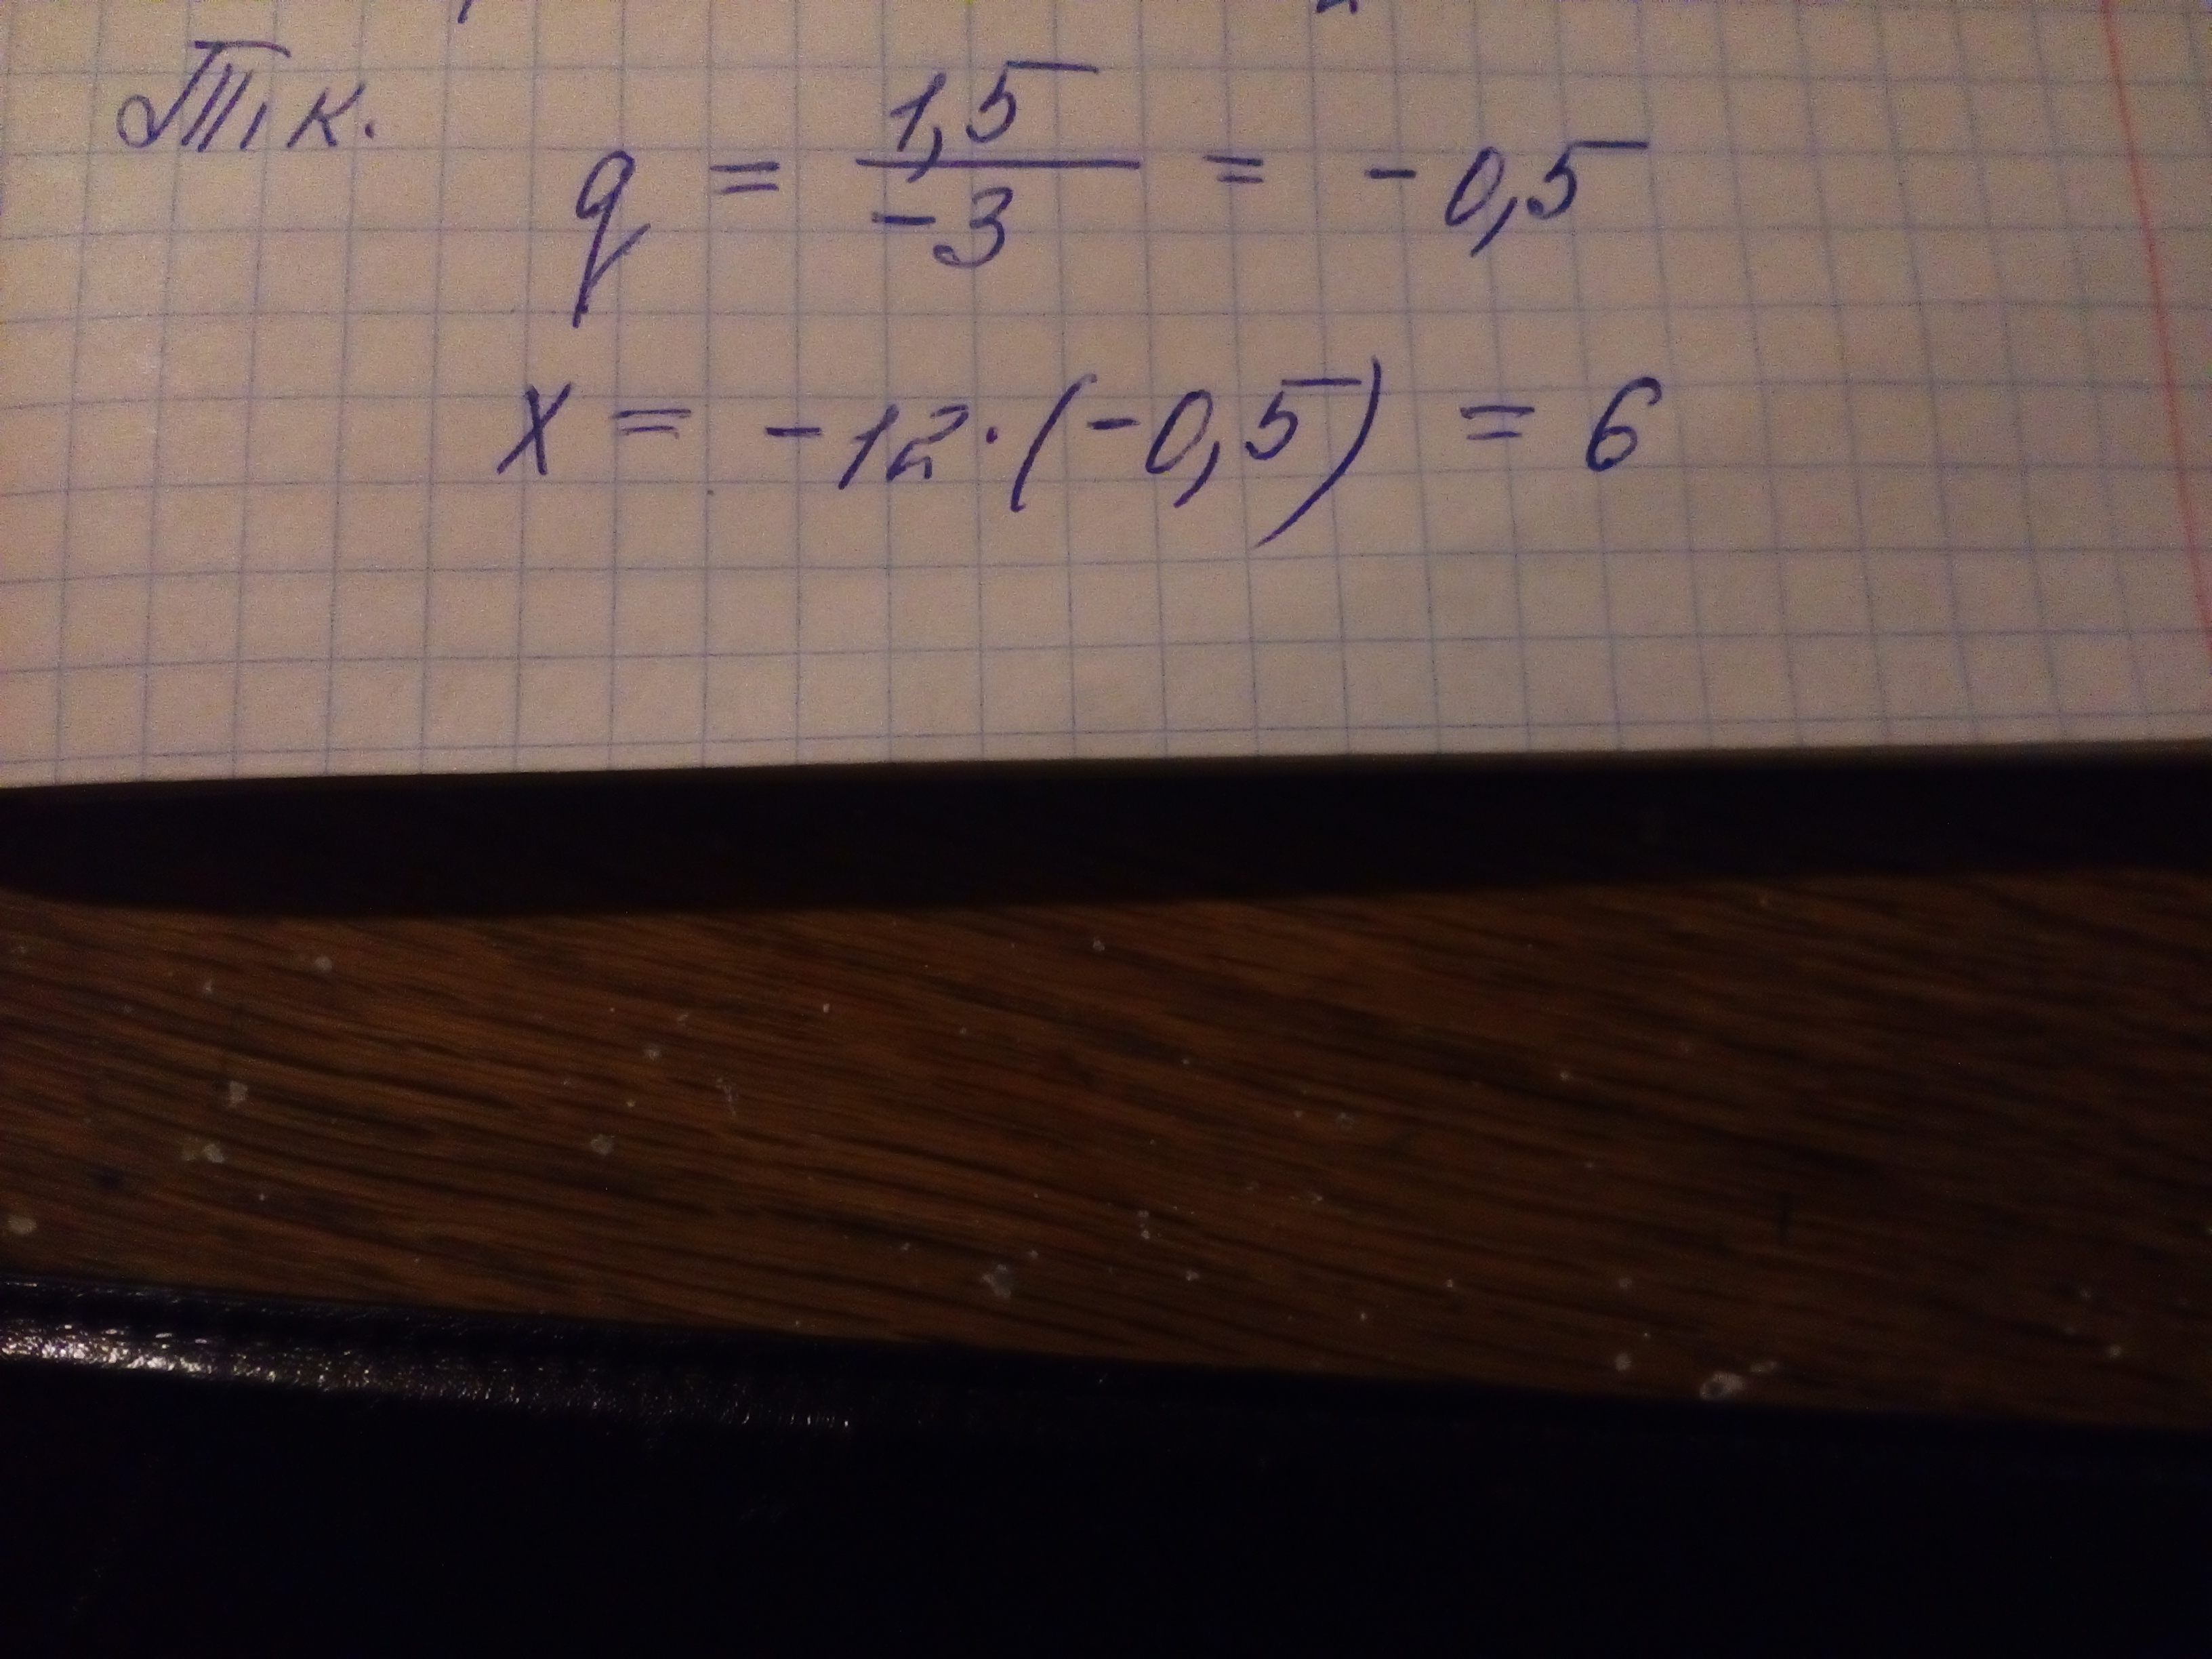 Т, к.
q = 1,5 / -3 = -0,5
x = -12·(-0,5) = 6